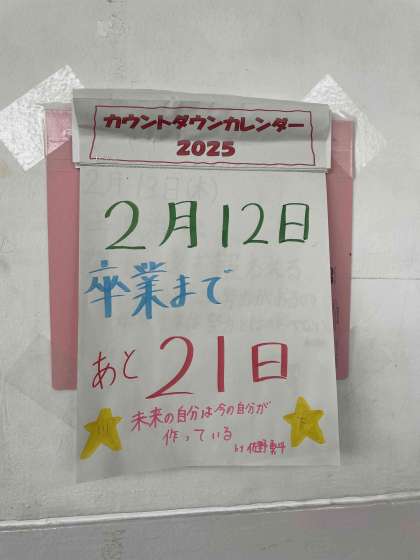 カウントダウンカレンダー
2025
2月12日
卒業まで
あと21日
未来の自分は今の自分が
作っている
by 佐野勇斗